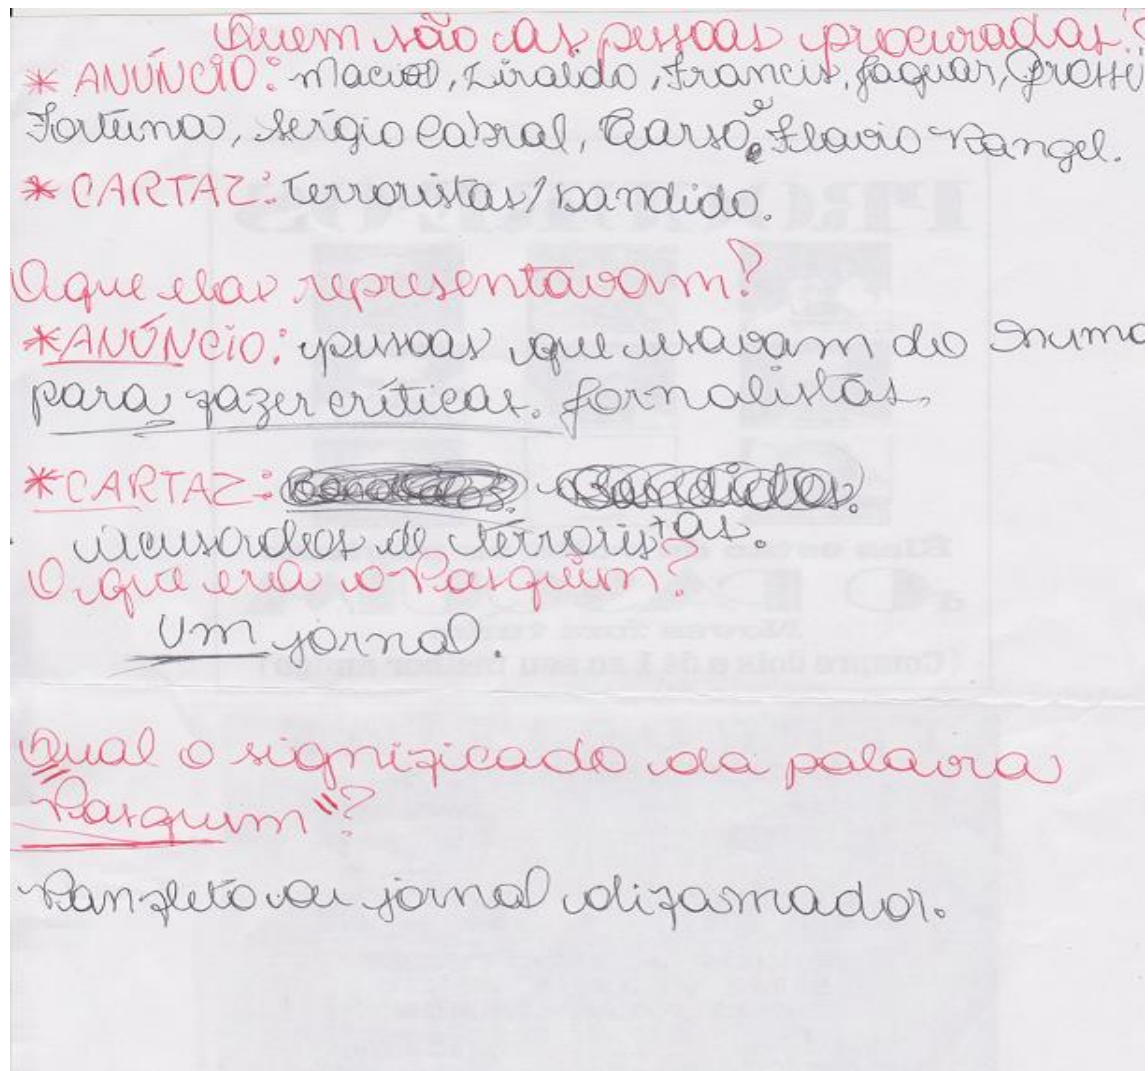 Quem são as pessoas procuradas?
* ANÚNCIO: Maciel, Ziraldo, Francis, Jaguar, Grossi
Fortuna, Sérgio Cabral, Garso e Flavio Rangel.
* CARTAZ: terroristas/bandido.
O que elas representavam?
* ANÚNCIO: pessoas que usavam do Humo
para fazer críticas. jornalistas.
* CARTAZ: Bandidos.
acusados de terroristas.
O que era o Pasquim?
Um jornal.
Qual o significado da palavra
"Pasquim"?
Panfleto ou jornal difamador.
PROCURADOS
(Compre dois e dê 1 ao seu melhor amigo)